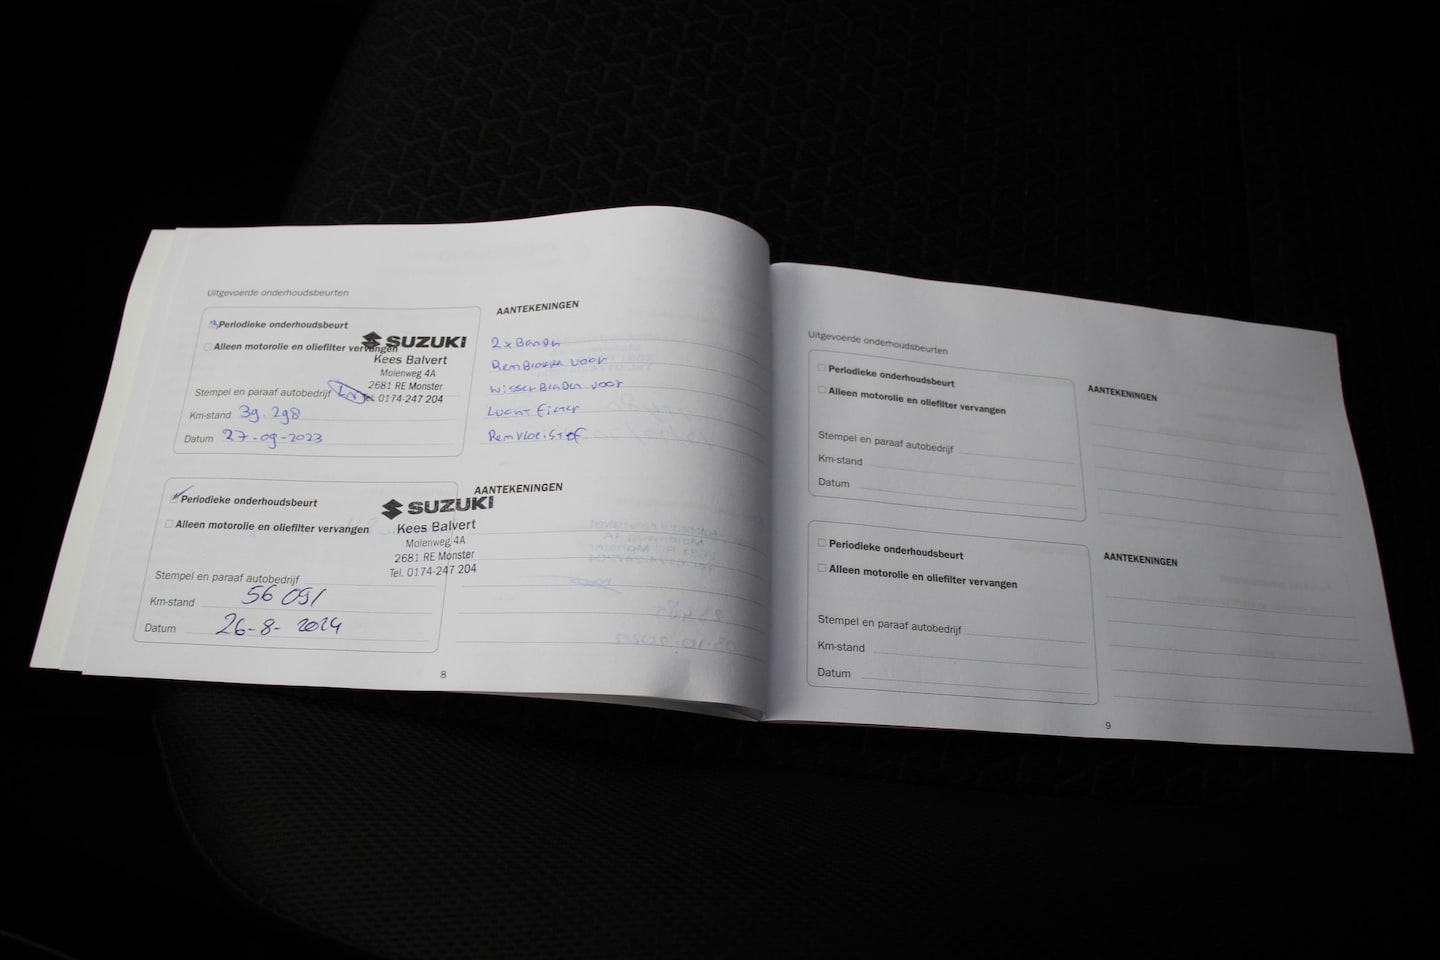 Uitgevoerde onderhoudsbeurten
Periodieke onderhoudsbeurt
Alleen motorolie en oliefilter vervangen
SUZUKI
Kees Balvert
Molenweg 4A
2681 RE Monster
Tel. 0174-247 204
Stempel en paraaf autobedrijf
Km-stand 39.298
Datum 27-09-2023
AANTEKENINGEN
2x Banden
Remblokken voor
Wisserbladen voor
Lucht Filter
Remvloeistof
Periodieke onderhoudsbeurt
Alleen motorolie en oliefilter vervangen
SUZUKI
Kees Balvert
Molenweg 4A
2681 RE Monster
Tel. 0174-247 204
Stempel en paraaf autobedrijf
Km-stand 56 091
Datum 26-8-2024
AANTEKENINGEN
8
Uitgevoerde onderhoudsbeurten
Periodieke onderhoudsbeurt
Alleen motorolie en oliefilter vervangen
Stempel en paraaf autobedrijf
Km-stand
Datum
AANTEKENINGEN
Periodieke onderhoudsbeurt
Alleen motorolie en oliefilter vervangen
Stempel en paraaf autobedrijf
Km-stand
Datum
AANTEKENINGEN
9